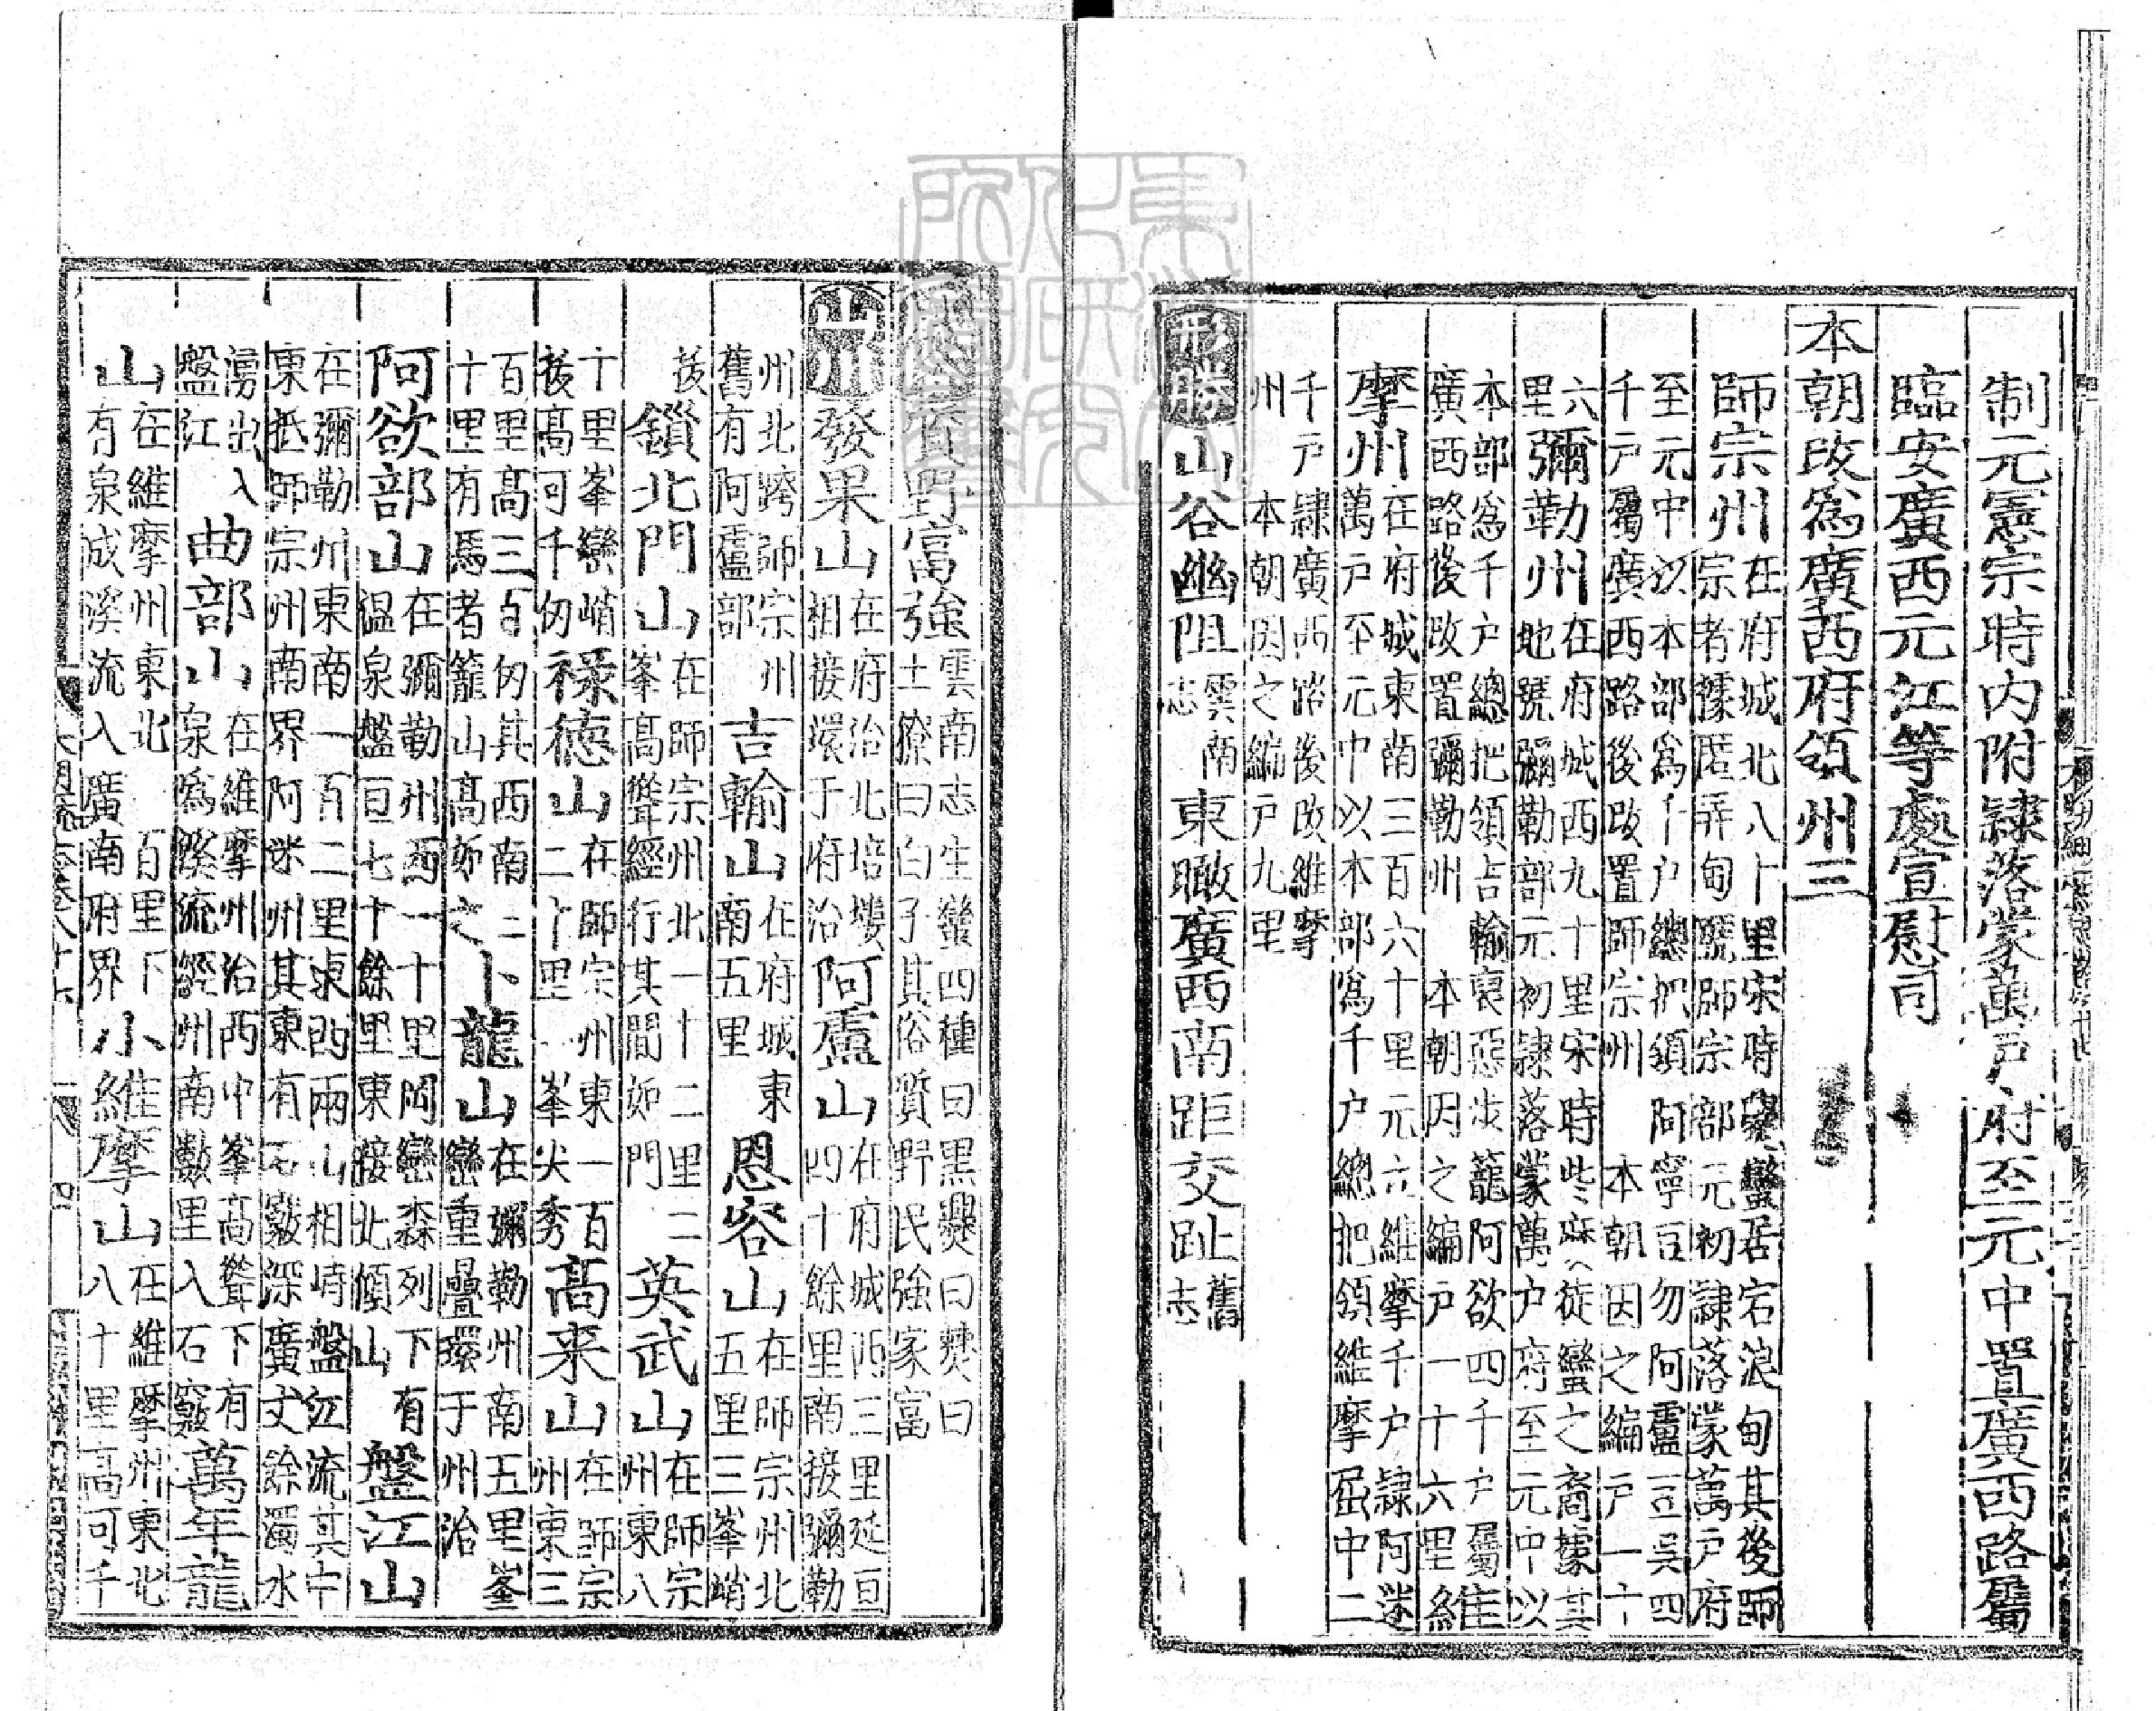 制元憲宗時内附隷落蒙萬户府至元中置廣西路屬
臨安廣西元江等處宣慰司
本朝改爲廣西府領州三
師宗州在府城北八十里宋時爨蠻居宕浪甸其後師
宗者據匿弄甸號師宗部元初隷落蒙萬户府
至元中以本部爲千户總把領阿寧豆勿阿盧豆吳四
千户屬廣西路後改置師宗州 本朝因之編户一十
六里彌勒州在府城西九十里宋時些麽徒蠻之裔據其
地號彌勒部元初隷落蒙萬户府至元中以
本部爲千户總把領吉輸裒惡步籠阿欲四千户屬
廣西路後改置彌勒州 本朝因之編户一十六里維
摩州在府城東南三百六十里元立維摩千户隷阿迷
萬户至元中以本部爲千户總把領維摩屈中二
千户隷廣西路後改維摩
州 本朝因之編户九里
形勝山谷幽阻雲南志東瞰廣西南距交趾舊志
風俗質野富強雲南志生蠻四種曰黑爨曰僰曰
土獠曰白子其俗質野民強家富
山川發果山在府治北培塿相接環于府治阿盧山在府城西三里延亘四十餘里南接彌勒
州北跨師宗州舊有阿盧部吉輸山在府城東南五里恩容山在師宗州北五里三峯峭
拔鎖北門山在師宗州北一十二里二峯高聳經行其間如門英武山在師宗州東八
十里峯巒峭拔高可千仞祿德山在師宗州東一百二十里一峯尖秀高來山在師宗州東三
百里高三百仞其西南二十里有馬者籠山高如之卜龍山在彌勒州南五里峯巒重疊環于州治
阿欲部山在彌勒州西一十里岡巒森列下有温泉盤亘七十餘里東接北傾山盤江山
在彌勒州東南一百二里與の兩山相峙盤江流其中
東抵師宗州南界阿迷州其東有石竅深廣丈餘濁水
湧出入盤江曲部山在維摩州治西中峯高聳下有泉爲谿流經州南數里入石竅萬年龍
山在維摩州東北一百里下有泉成溪流入廣南府界小維摩山在維摩州東北八十里高可千